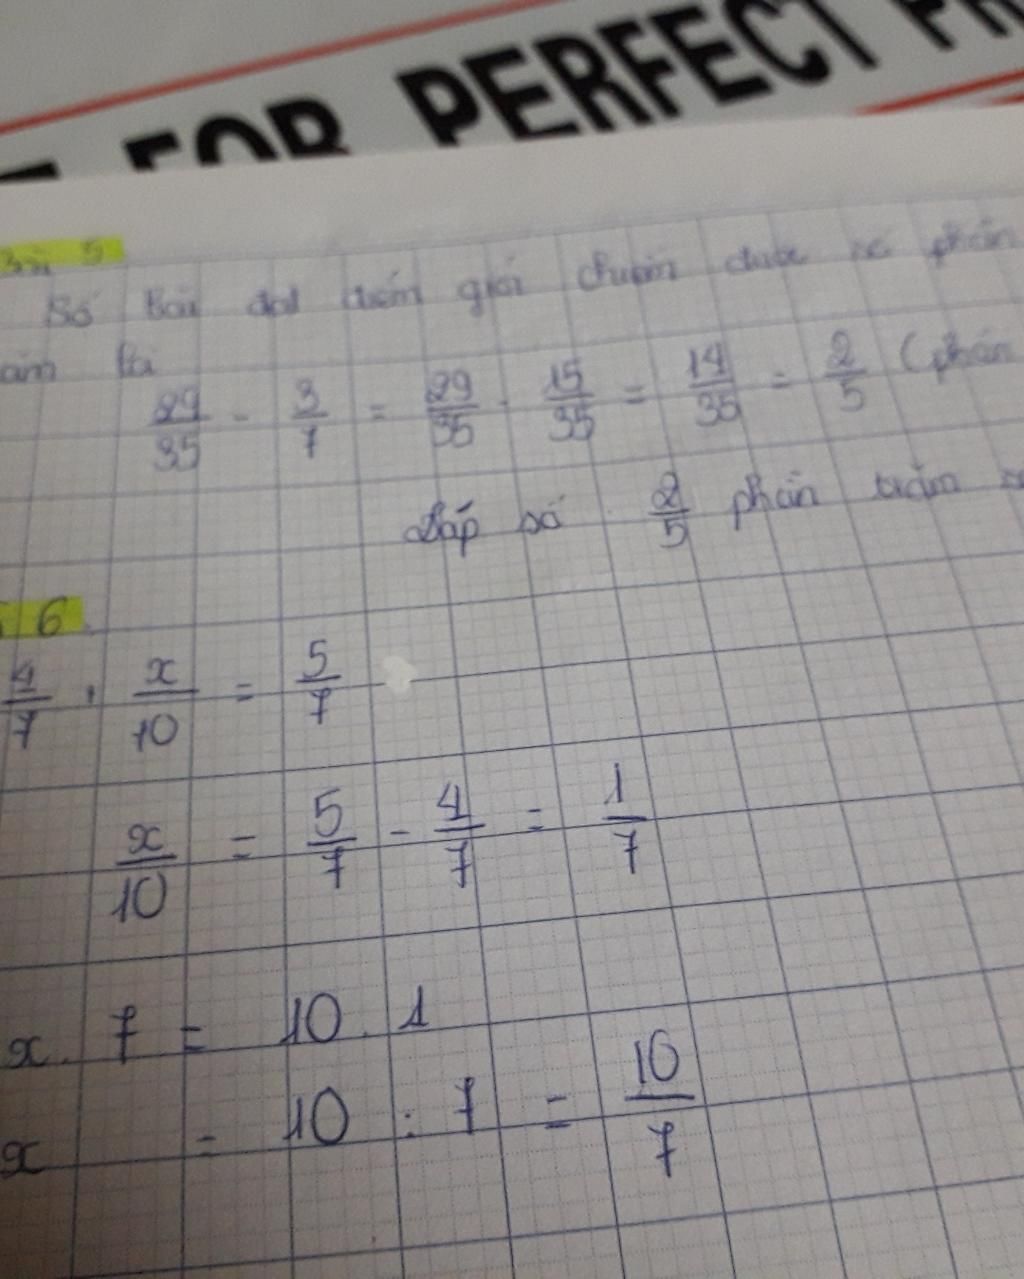 FOR PERFECT
Bài 5
Số bài đạt điểm giỏi chiếm được là phần
là
29/35 - 3/7 = 29/35 - 15/35 = 14/35 = 2/5 (phần
Đáp số : 2/5 phần trăm
6
4/7 + x/10 = 5/7
x/10 = 5/7 - 4/7 = 1/7
x . 7 = 10 . 1
x = 10 : 7 = 10/7